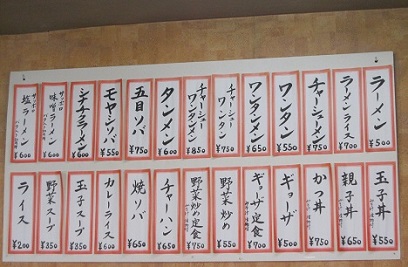 ラーメン ¥500
ラーメンライス ¥700
チャーシューメン ¥750
ワンタン ¥550
ワンタンメン ¥650
チャーシューワンタン ¥750
チャーシューワンタンメン ¥850
タンメン ¥600
五目ソバ ¥750
モヤシソバ ¥550
シナチクラーメン ¥600
サッポロ味噌ラーメン ¥600
サッポロ塩ラーメン ¥600
玉子丼 ¥550
親子丼 ¥650
かつ丼 ¥750
ギョーザ ¥500
ギョーザ定食 ¥700
野菜炒め ¥550
野菜炒め定食 ¥750
チャーハン ¥650
焼ソバ ¥650
カレーライス ¥600
玉子スープ ¥350
野菜スープ ¥350
ライス ¥200